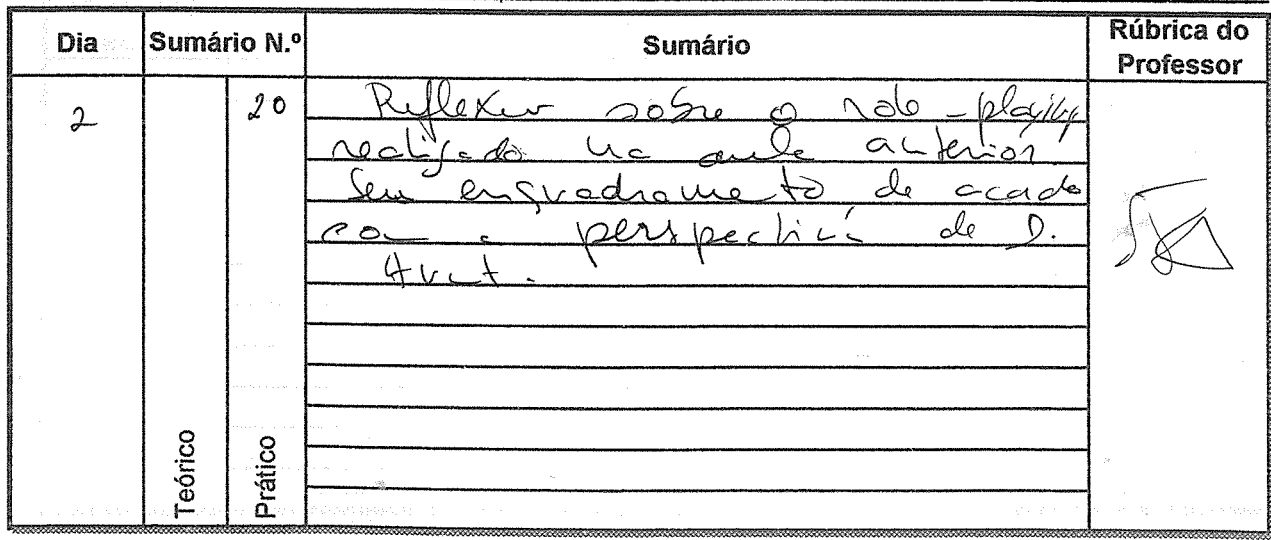 Dia Sumário N.º Sumário Rúbrica do Professor
2 20 Reflexão sobre o role-playing
realizado na aula anterior.
Seu enquadramento de acordo
com a perspectiva de D.
Hunt.
Teórico
Prático